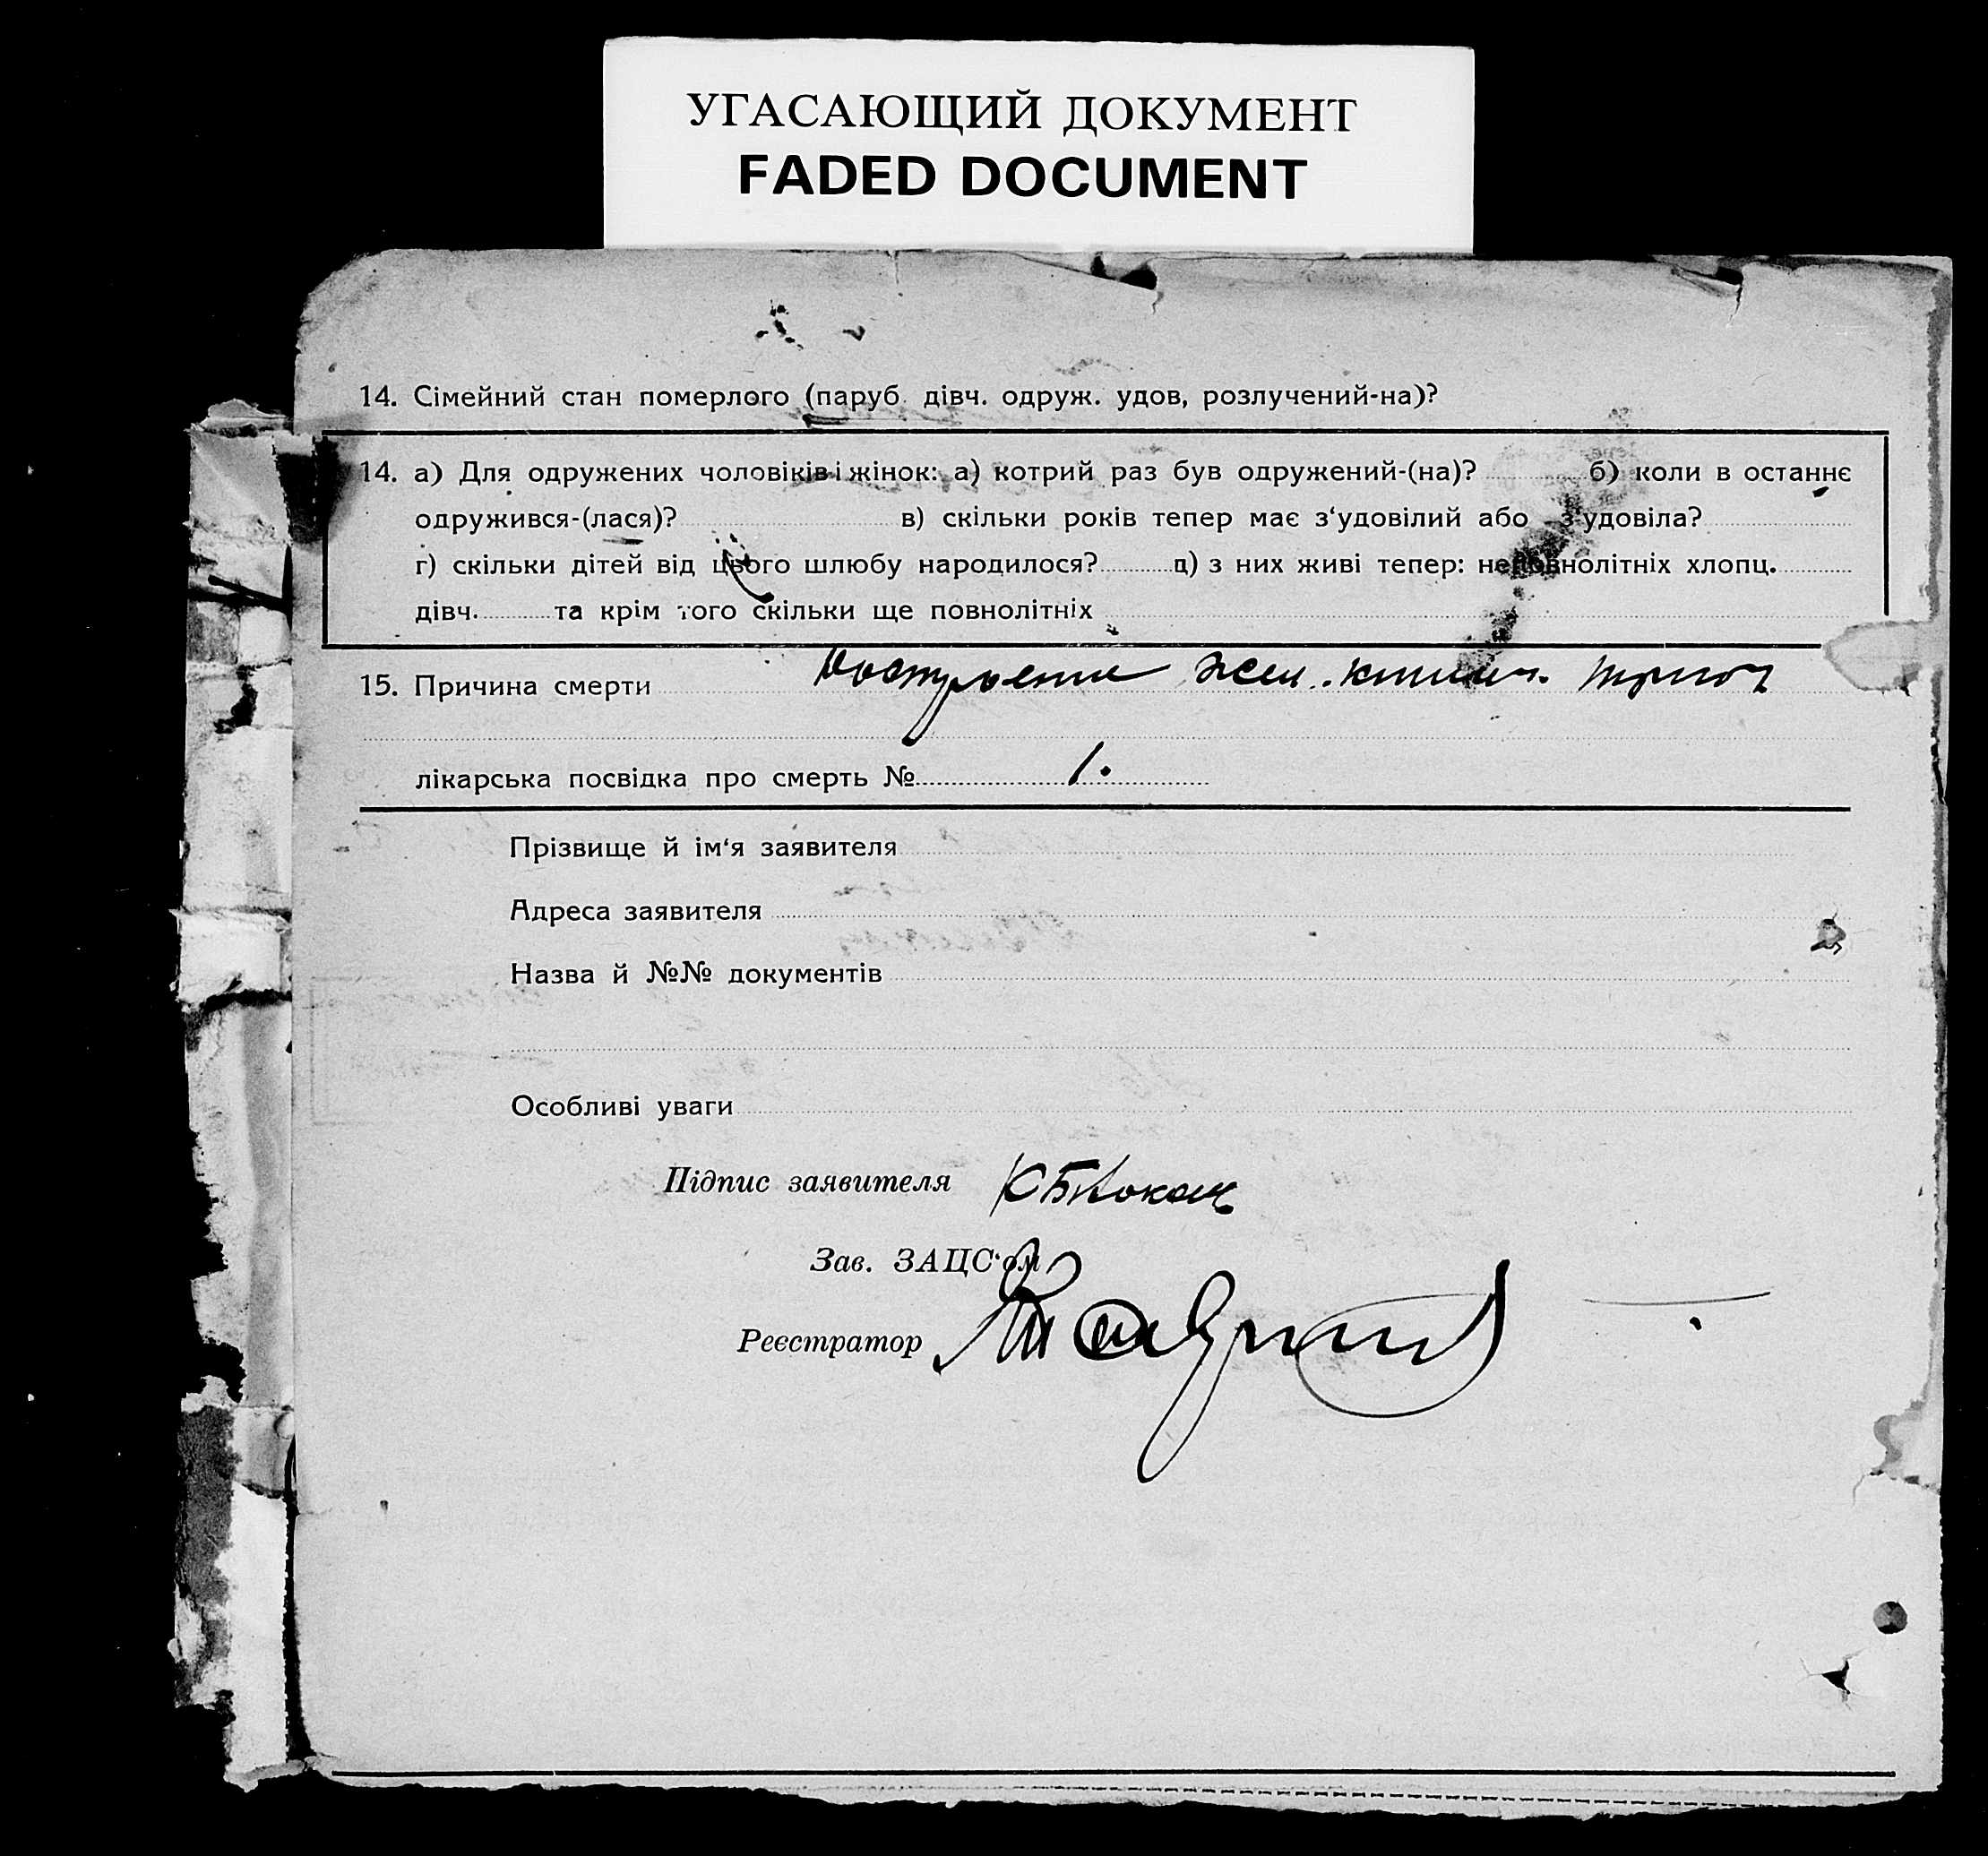 УГАСАЮЩИЙ ДОКУМЕНТ
FADED DOCUMENT
14. Сімейний стан померлого (паруб. дівч. одруж. удов, розлучений-на)?
14. а) Для одружених чоловіків і жінок: а) котрий раз був одружений-(на)? б) коли в останнє
одружився-(лася)? в) скільки років тепер має з‘удовілий або з‘удовіла?
г) скільки дітей від цього шлюбу народилося? д) з них живі тепер: неповнолітніх хлопц.
дівч. та крім того скільки ще повнолітніх
15. Причина смерти
лікарська посвідка про смерть № 1.
Прізвище й ім‘я заявителя
Адреса заявителя
Назва й №№ документів
Особливі уваги
Підпис заявителя
Зав. ЗАЦС‘ом
Реєстратор